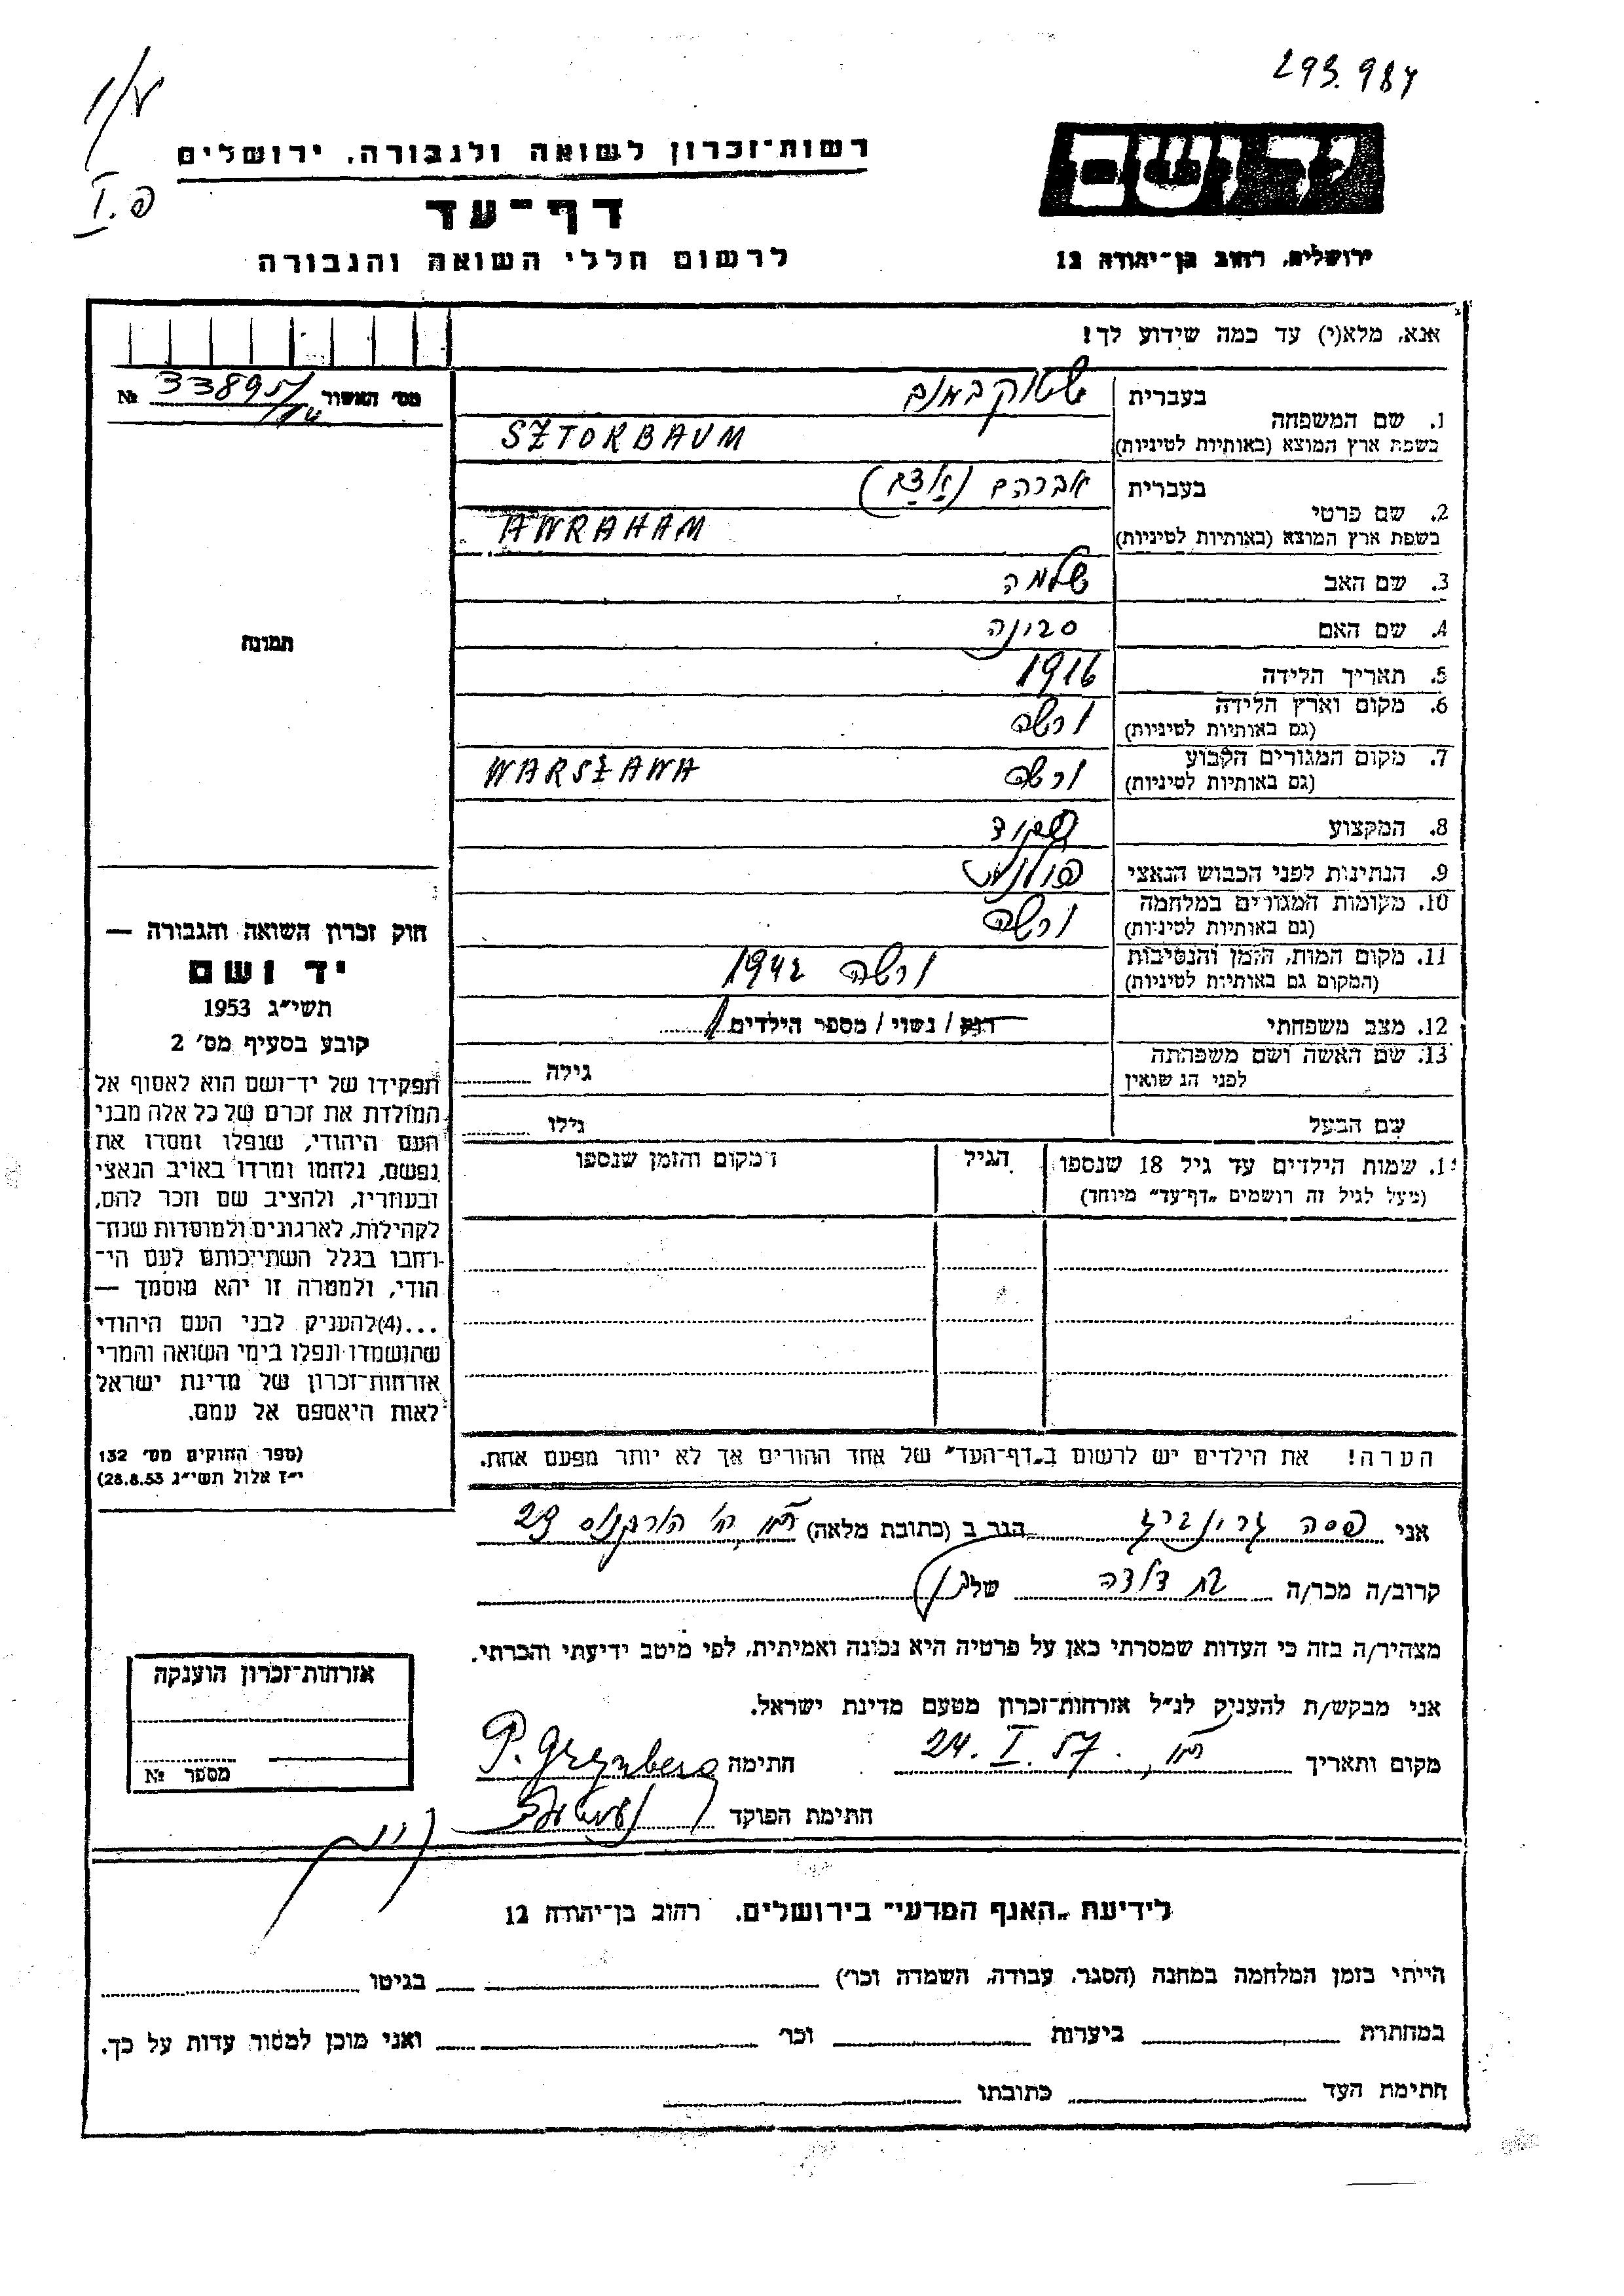 293.984
רשות־זכרון לשואה ולגבורה, ירושלים
דף־עד
לרשום חללי השואה והגבורה
ירושלים, רחוב בן־יהודה 12
פ. I
אנא, מלא(י) עד כמה שידוע לך!
מס' האשור № 33895/14
1. שם המשפחה בעברית
בשפת ארץ המוצא (באותיות לטיניות) SZTORBAUM
2. שם פרטי בעברית אברהם
בשפת ארץ המוצא (באותיות לטיניות) AWRAHAM
3. שם האב שלמה
4. שם האם
5. תאריך הלידה 1916
6. מקום וארץ הלידה ורשה
(גם באותיות לטיניות)
7. מקום המגורים הקבוע ורשה WARSZAWA
(גם באותיות לטיניות)
8. המקצוע
9. הנתינות לפני הכבוש הנאצי
10. מקומות המגורים במלחמה ורשה
(גם באותיות לטיניות)
11. מקום המות, הזמן והנסיבות ורשה 1942
(המקום גם באותיות לטיניות)
12. מצב משפחתי רוק / נשוי / מספר הילדים
13. שם האשה ושם משפחתה גילה
לפני הנשואין
שם הבעל גילו
שמות הילדים עד גיל 18 שנספו הגיל המקום והזמן שנספו
(מעל לגיל זה רושמים „דף־עד” מיוחד)
הערה! את הילדים יש לרשום ב„דף־העד” של אחד ההורים אך לא יותר מפעם אחת.
תמונה
חוק זכרון השואה והגבורה —
יד ושם
תשי״ג 1953
קובע בסעיף מס' 2
תפקידו של יד־ושם הוא לאסוף אל
המולדת את זכרם של כל אלה מבני
העם היהודי, שנפלו ומסרו את
נפשם, נלחמו ומרדו באויב הנאצי
ובעוזריו, ולהציב שם וזכר להם,
לקהילות, לארגונים ולמוסדות שנח־
רבו בגלל השתייכותם לעם הי־
הודי, ולמטרה זו יהא מוסמך —
...(4) להעניק לבני העם היהודי
שהושמדו ונפלו בימי השואה והמרי
אזרחות־זכרון של מדינת ישראל
לאות היאספם אל עמם.
(ספר החוקים מס' 132
י״ז אלול תשי״ג 28.8.53)
אני פסה גרינברג הגר ב (כתובת מלאה) 29
קרוב/ה מכר/ה בת דודה של
מצהיר/ה בזה כי העדות שמסרתי כאן על פרטיה היא נכונה ואמיתית, לפי מיטב ידיעתי והכרתי.
אני מבקש/ת להעניק לנ״ל אזרחות־זכרון מטעם מדינת ישראל.
מקום ותאריך 24. I. 57 חתימה P. Grynberg
חתימת הפוקד
אזרחות־זכרון הוענקה
מספר №
לידיעת „האגף המדעי” בירושלים, רחוב בן־יהודה 12
הייתי בזמן המלחמה במחנה (הסגר, עבודה, השמדה וכו') בגיטו
במחתרת ביערות וכו' ואני מוכן למסור עדות על כך.
חתימת העד כתובתו